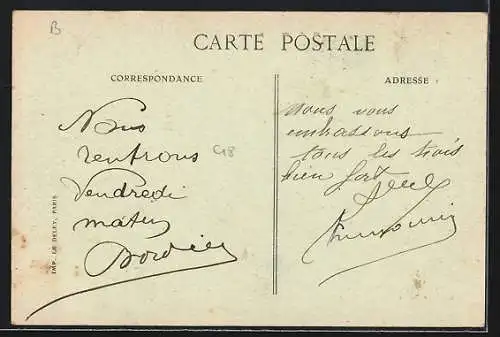 B
CARTE POSTALE
CORRESPONDANCE
ADRESSE
Nous
rentrons
Vendredi
matin
Bordier
C18
nous vous
embrassons
tous les trois
bien fort
IMP. LE DELEY, PARIS